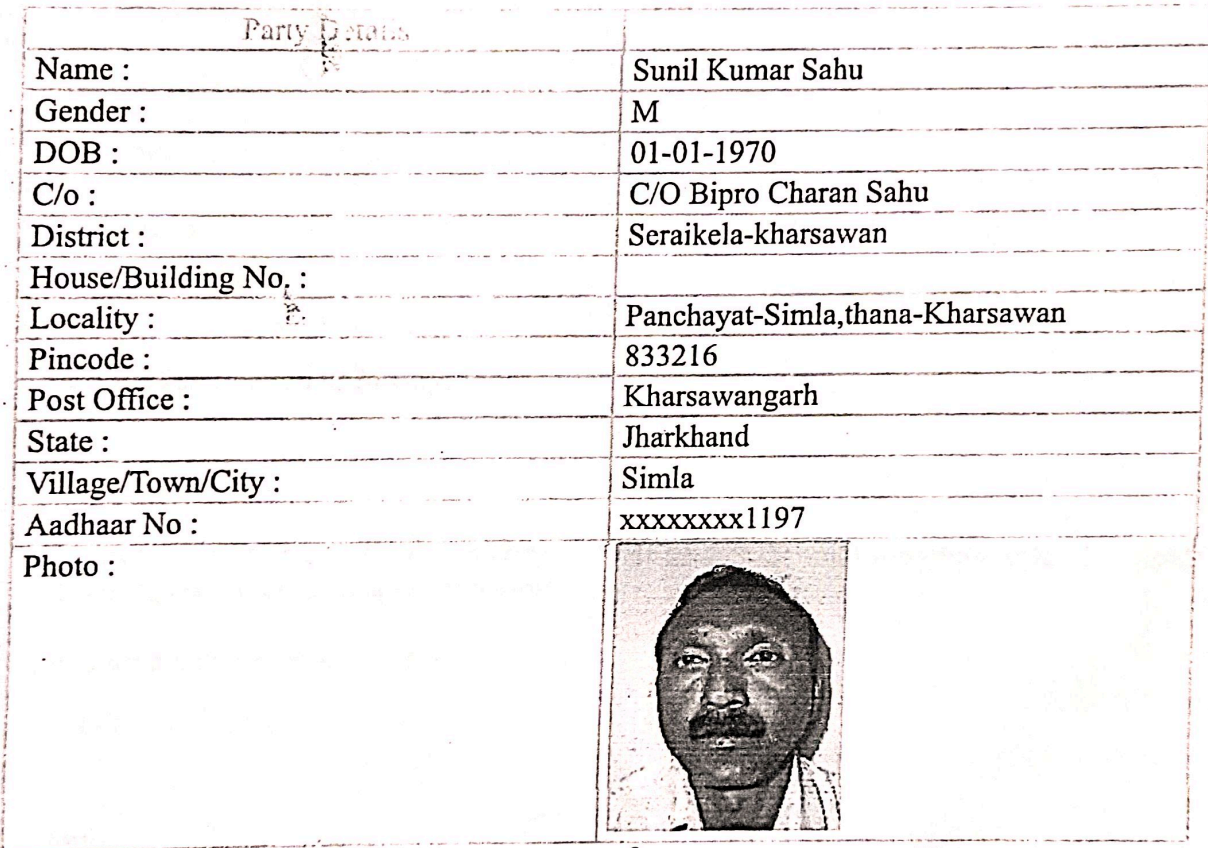 Party Details
Name : Sunil Kumar Sahu
Gender : M
DOB : 01-01-1970
C/o : C/O Bipro Charan Sahu
District : Seraikela-kharsawan
House/Building No. :
Locality : Panchayat-Simla,thana-Kharsawan
Pincode : 833216
Post Office : Kharsawangarh
State : Jharkhand
Village/Town/City : Simla
Aadhaar No : xxxxxxxx1197
Photo :